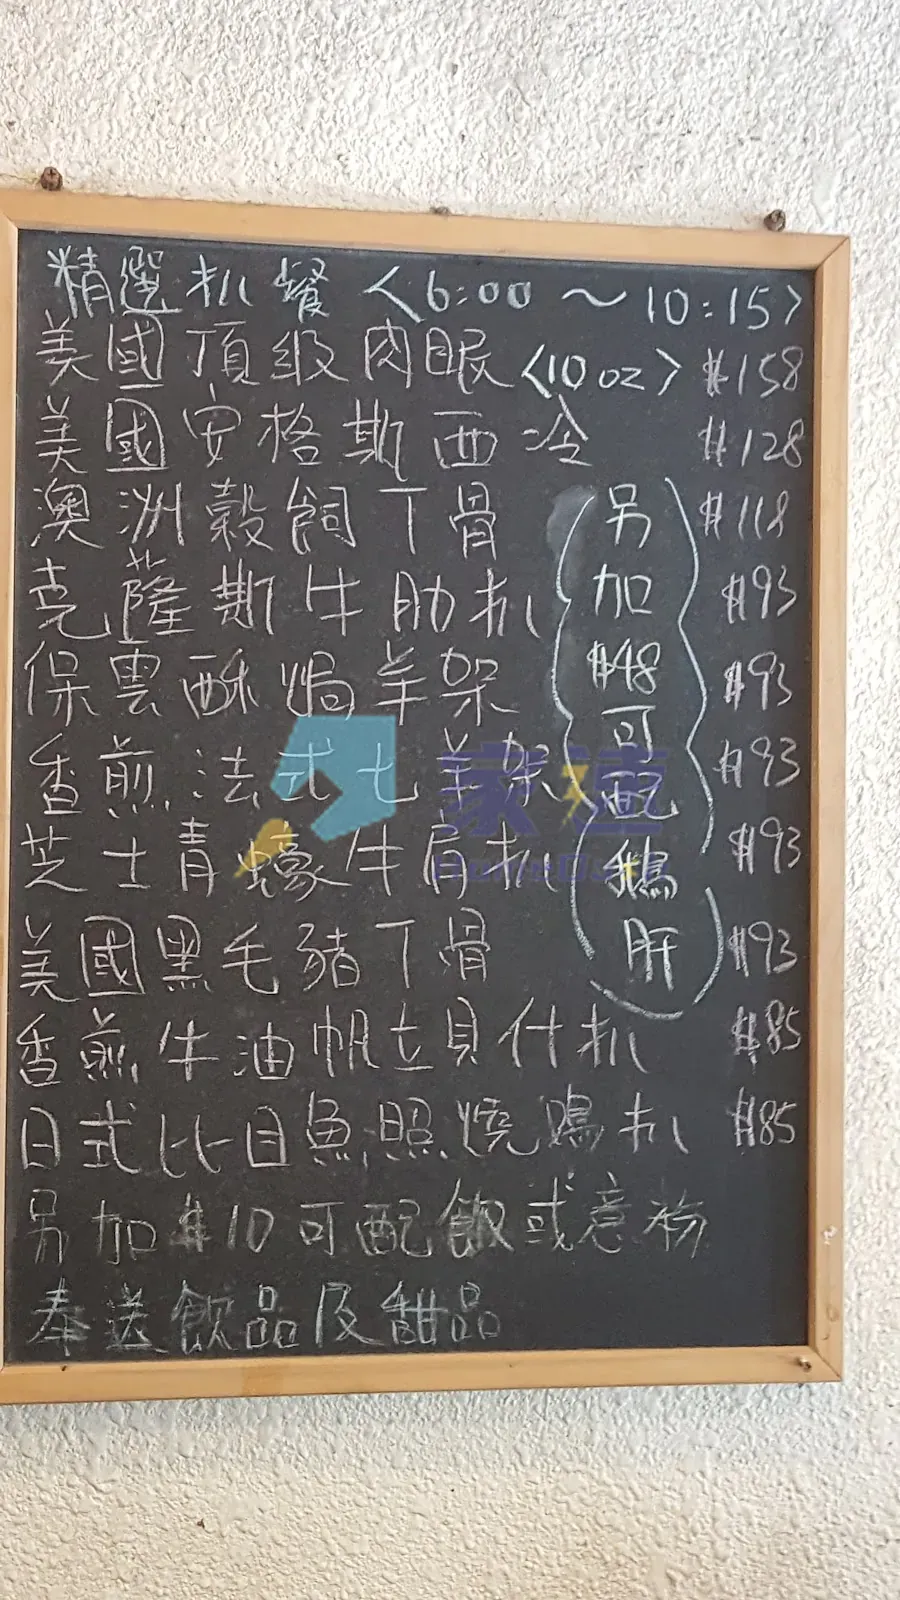 精選扒餐〈6:00～10:15〉
美國頂級肉眼〈10oz〉$158
美國安格斯西冷 $128
澳洲穀飼丁骨 $118
克薩斯牛肋扒 $93
保雲酥焗羊架 $93
香煎法式七羊架 $93
芝士青蠔牛肩扒 $93
美國黑毛豬丁骨 $93
香煎牛油帆立貝什扒 $85
日式比目魚照燒鴨扒 $85
(另加$48可配鵝肝)
另加$10可配飯或意粉
奉送飲品及甜品
家速